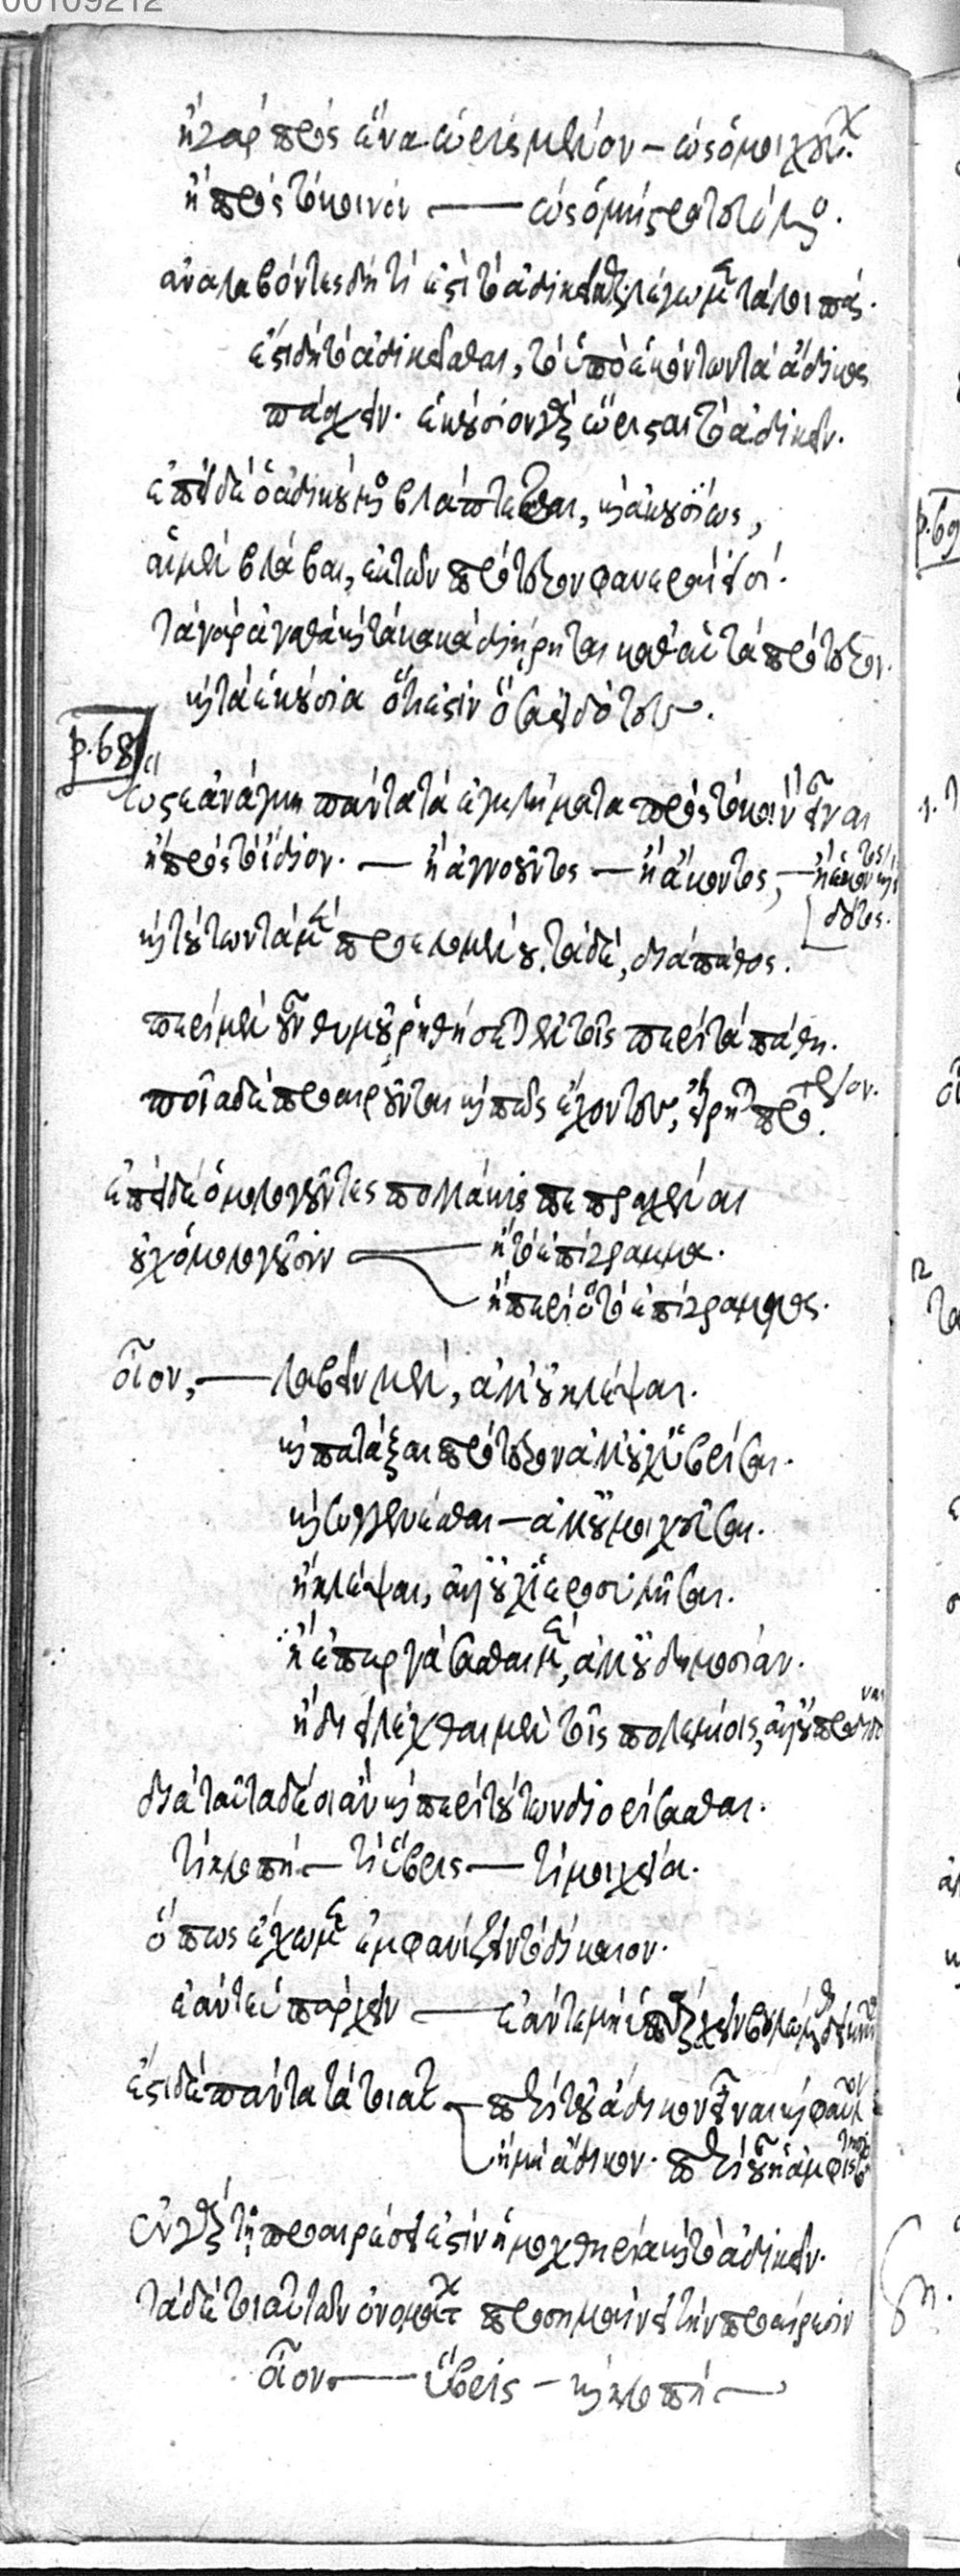 00109212
ἢ γὰρ πρὸς ἕνα ὡρισμένον — ὡς ὁ μοιχεύων.
ἢ πρὸς τὸ κοινόν —— ὡς ὁ μὴ στρατευόμενος.
ἀναλαβόντες δὴ τί ἐστι τὸ ἀδικεῖσθαι, λέγωμεν τὰ λοιπά.
ἔστι δὴ τὸ ἀδικεῖσθαι, τὸ ὑπὸ ἑκόντων τὰ ἄδικα
πάσχειν. ἑκούσιον γὰρ ὥρισται τὸ ἀδικεῖν.
ἐπεὶ δὲ ὁ ἀδικούμενος βλάπτεται, καὶ ἀκουσίως,
αἱ μὲν βλάβαι, ἐκ τῶν πρότερον φανεραί εἰσι.
τὰ γὰρ ἀγαθὰ καὶ τὰ κακὰ διῄρηται καθ' αὑτὰ πρότερον.
καὶ τὰ ἑκούσια ὅτι ἐστὶν ὅσα εἰδότες.
p.68
ὥστε ἀνάγκη πάντα τὰ ἐγκλήματα πρὸς τὸ κοινὸν εἶναι
ἢ πρὸς τὸ ἴδιον. — ἢ ἀγνοοῦντος — ἢ ἄκοντος, — ἢ ἑκόντος καὶ
εἰδότος.
καὶ τούτων τὰ μὲν προελομένου, τὰ δὲ, διὰ πάθος.
περὶ μὲν οὖν θυμοῦ ῥηθήσεται ἐν τοῖς περὶ τὰ πάθη.
ποῖα δὲ προαιροῦνται καὶ πῶς ἔχοντες, εἴρηται πρότερον.
ἐπεὶ δὲ ὁμολογοῦντες πολλάκις πεπραχέναι
οὐχ ὁμολογοῦσιν —— ἢ τὸ ἐπίγραμμα.
ἢ περὶ ὃ τὸ ἐπίγραμμα.
οἷον, — λαβεῖν μὲν, ἀλλ' οὐ κλέψαι.
καὶ πατάξαι πρότερον ἀλλ' οὐχ ὑβρίσαι.
καὶ συγγενέσθαι — ἀλλ' οὐ μοιχεῦσαι.
ἢ κλέψαι, ἀλλ' οὐχ ἱεροσυλῆσαι.
ἢ ἐπεργάσασθαι μὲν, ἀλλ' οὐ δημοσίαν.
ἢ διειλέχθαι μὲν τοῖς πολεμίοις, ἀλλ' οὐ προδοῦναι
διὰ ταῦτα δέοι ἂν καὶ περὶ τούτων διορίσασθαι.
τί κλοπή — τί ὕβρις — τί μοιχεία.
ὅπως ἔχωμεν ἐμφανίζειν τὸ δίκαιον.
ἐάν τε ὑπάρχειν —— ἐάν τε μὴ ὑπάρχειν βουλώμεθα δεικνύναι
ἔστι δὲ πάντα τὰ τοιαῦτα — περὶ τοῦ ἄδικον εἶναι καὶ φαῦλον
ἢ μὴ ἄδικον. περὶ οὗ ἡ ἀμφισβήτησις
ἐν γὰρ τῇ προαιρέσει ἐστὶν ἡ μοχθηρία καὶ τὸ ἀδικεῖν.
τὰ δὲ τοιαῦτα τῶν ὀνομάτων προσημαίνει τὴν προαίρεσιν
οἷον —— ὕβρις — καὶ κλοπή —